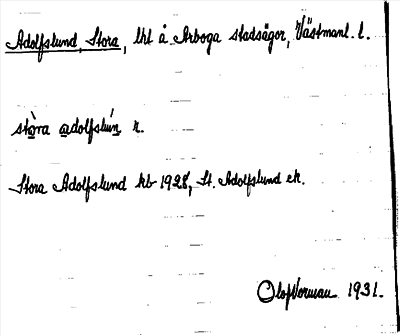 Adolfslund, Stora, lht å Arboga stadsägor, Västmanl. l.
stòra adolfslún r.
Stora Adolfslund kb 1928, St. Adolfslund ek.
Olof Vorman 1931.